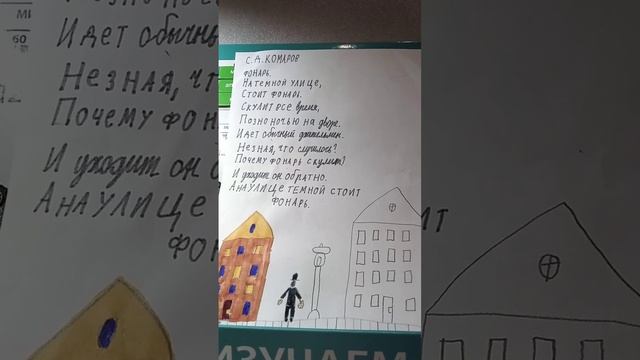 С.А.КОМАРОВ
ФОНАРЬ.
НА ТЕМНОЙ УЛИЦЕ,
СТОИТ ФОНАРЬ.
СКУЛИТ ВСЕ время,
ПОЗНО НОЧЬЮ НА ДВОРЕ.
Идет обычный джательмен.
Незная, что случилось?
Почему фонарь скулит?
И уходит он обратно.
А НА УЛИЦЕ ТЕМНОЙ СТОИТ
ФОНАРЬ.
ИЗУЧАЕМ